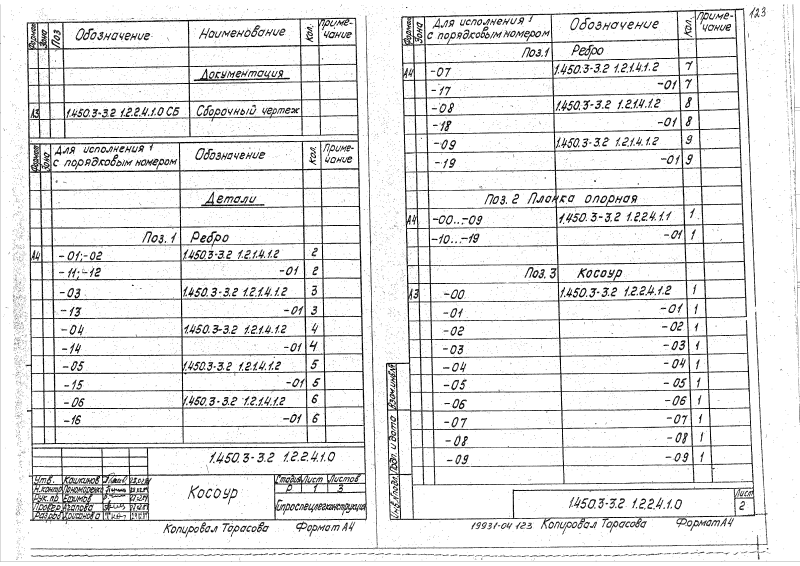 Формат Зона Поз. Обозначение Наименование Кол. Приме-чание
Документация
А3 1.450.3-3.2 1.2.2.4.1.0 СБ Сборочный чертеж
Формат Зона Для исполнения 1 с порядковым номером Обозначение Кол. Приме-чание
Детали
Поз. 1 Ребро
А4 -01;-02 1.450.3-3.2 1.2.1.4.1.2 2
-11;-12 -01 2
-03 1.450.3-3.2 1.2.1.4.1.2 3
-13 -01 3
-04 1.450.3-3.2 1.2.1.4.1.2 4
-14 -01 4
-05 1.450.3-3.2 1.2.1.4.1.2 5
-15 -01 5
-06 1.450.3-3.2 1.2.1.4.1.2 6
-16 -01 6
1.450.3-3.2 1.2.2.4.1.0
Утв. Кашкинов
Н.контр. Пономарева
Рук.пр. Ефимов
Провер. Агапова
Разраб.
Косоур
Стадия Лист Листов
Р 3
Гипроспецлегконструкция
Копировал Тарасова Формат А4
123
Формат Зона Для исполнения 1 с порядковым номером Обозначение Кол. Приме-чание
Поз.1 Ребро
А4 -07 1.450.3-3.2 1.2.1.4.1.2 7
-17 -01 7
-08 1.450.3-3.2 1.2.1.4.1.2 8
-18 -01 8
-09 1.450.3-3.2 1.2.1.4.1.2 9
-19 -01 9
Поз. 2 Планка опорная
А4 -00...-09 1.450.3-3.2 1.2.2.4.1.1 1
-10...-19 -01 1
Поз. 3 Косоур
А3 -00 1.450.3-3.2 1.2.2.4.1.2 1
-01 -01 1
-02 -02 1
-03 -03 1
-04 -04 1
-05 -05 1
-06 -06 1
-07 -07 1
-08 -08 1
-09 -09 1
Инв.№подл. Подп. и дата Взам.инв.№
1.450.3-3.2 1.2.2.4.1.0
Лист
2
19931-04 123 Копировал Тарасова Формат А4